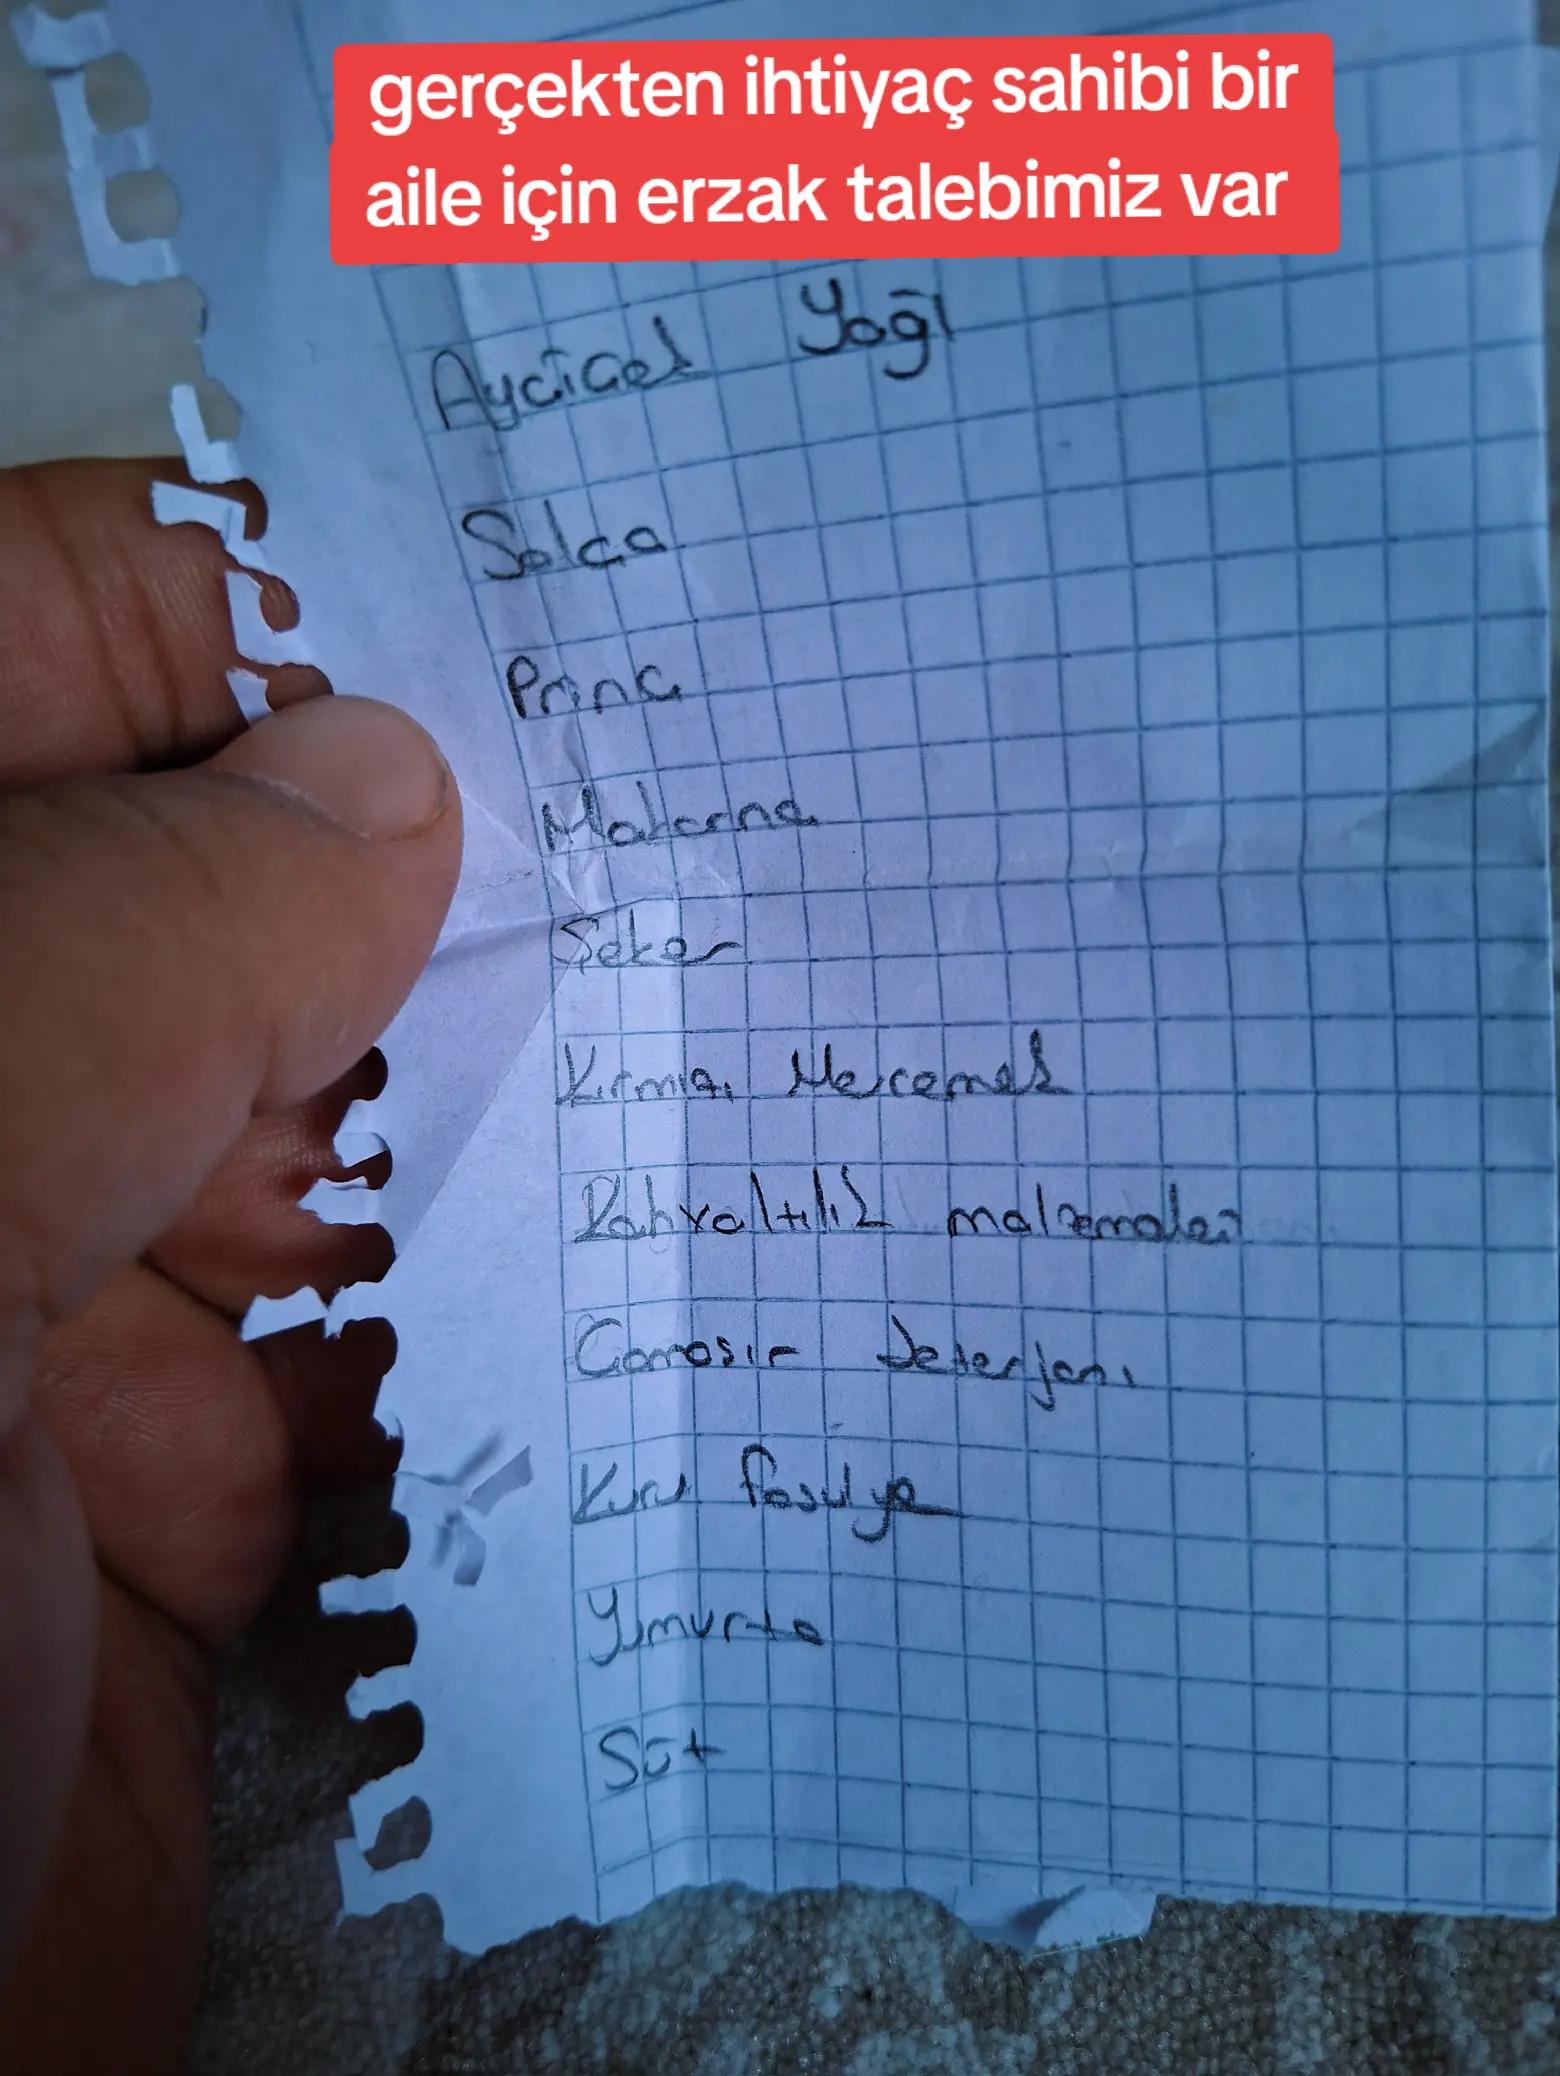 gerçekten ihtiyaç sahibi bir
aile için erzak talebimiz var
Ayciçek Yağı
Salça
Prinç
Makarna
Şeker
Kırmızı Mercemek
Kahvaltılık malzemaleri
Çamaşır Deterjanı
Kuru fasulye
Yumurta
Süt